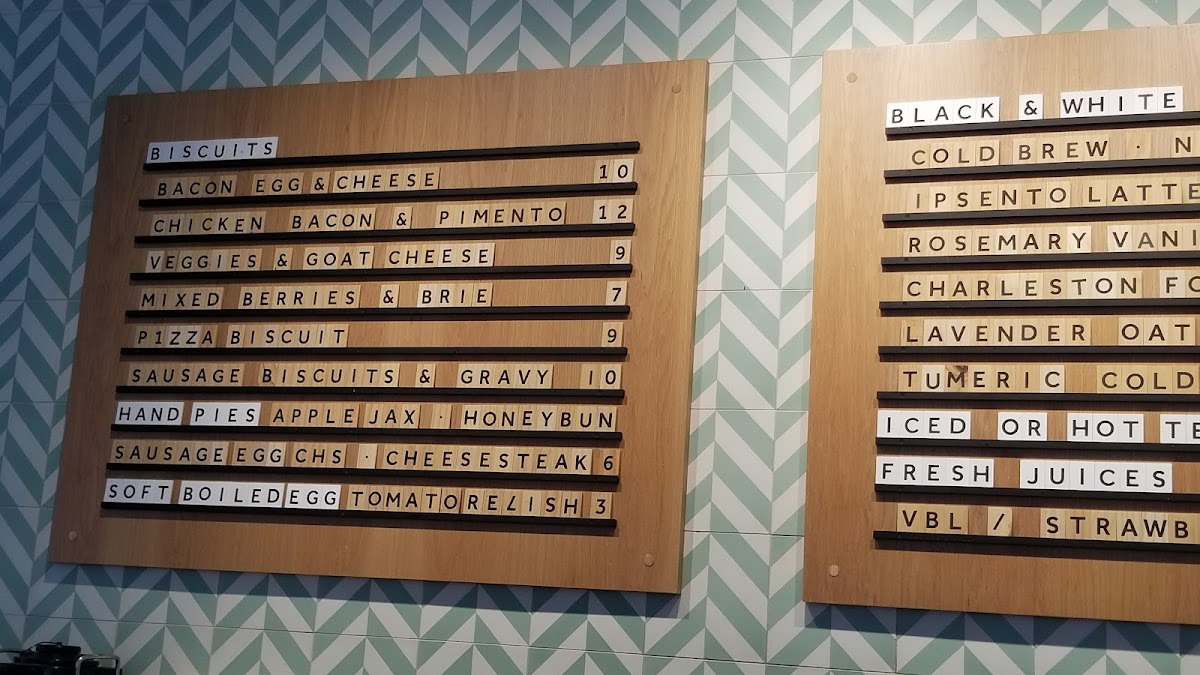 BISCUITS
BACON EGG & CHEESE 10
CHICKEN BACON & PIMENTO 12
VEGGIES & GOAT CHEESE 9
MIXED BERRIES & BRIE 7
P1ZZA BISCUIT 9
SAUSAGE BISCUITS & GRAVY 10
HAND PIES APPLE JAX · HONEYBUN
SAUSAGE EGG CHS · CHEESESTEAK 6
SOFT BOILED EGG TOMATO RELISH 3
BLACK & WHITE
COLD BREW · N
IPSENTO LATTE
ROSEMARY VANI
CHARLESTON FO
LAVENDER OAT
TUMERIC COLD
ICED OR HOT TE
FRESH JUICES
VBL / STRAWB